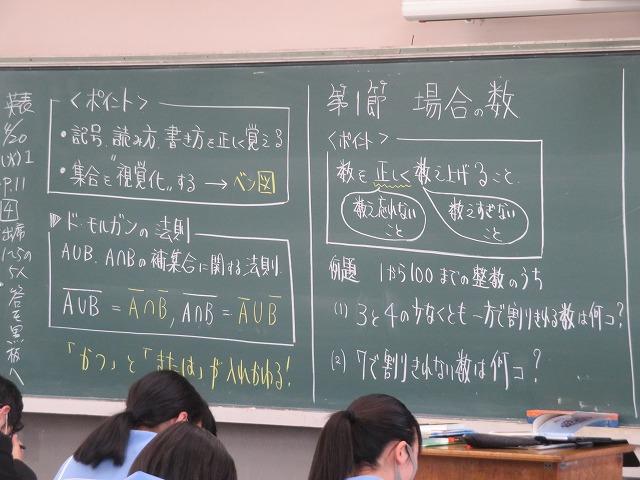 英表
4/20
(水)1
P.11
4
出席
1〜5の
5人
答を黒板へ
<ポイント>
・記号、読み方、書き方を正しく覚える
・集合を"視覚化"する → ベン図
ド・モルガンの法則
A∪B、A∩Bの補集合に関する法則.
A̅∪̅B̅ = A̅∩B̅, A̅∩̅B̅ = A̅∪B̅
「かつ」と「または」が入れかわる!
第1節 場合の数
<ポイント>
数を正しく数え上げること.
数え忘れない
こと
数えすぎない
こと
例題 1から100までの整数のうち
(1) 3と4の少なくとも一方で割りきれる数は何コ?
(2) 7で割りきれない数は何コ?